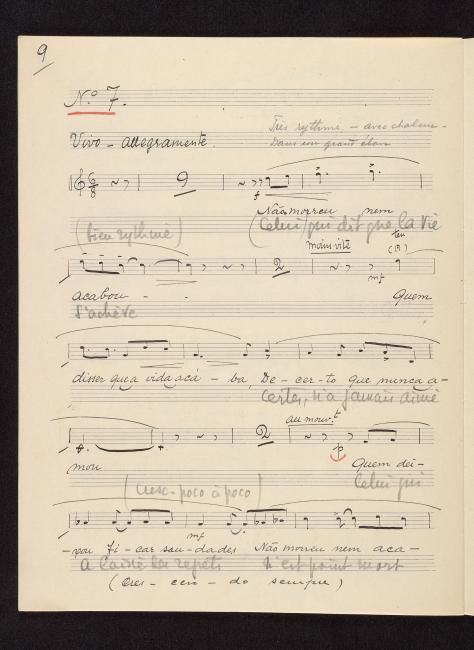 9
Nº 7.
Très rythmé - avec chaleur -
Vivo - allegramente.
Dans un grand élan
9
f
Não morreu nem
(bien rythmé)
(Celui qui dit que la vie
moins vite
ten
2
mf
acabou - -
Quem
s'achève
disser que a vida acá - ba, De - cer - to que nunca a -
Certes, n'a jamais aimé
au mouvt
2
p
mou
Quem dei -
(cresc - poco à poco)
Celui qui
mf
- xou fi - car sau - dades Não morreu nem aca -
a laissé des regrets n'est point mort
(Cres - cen - do sempre)